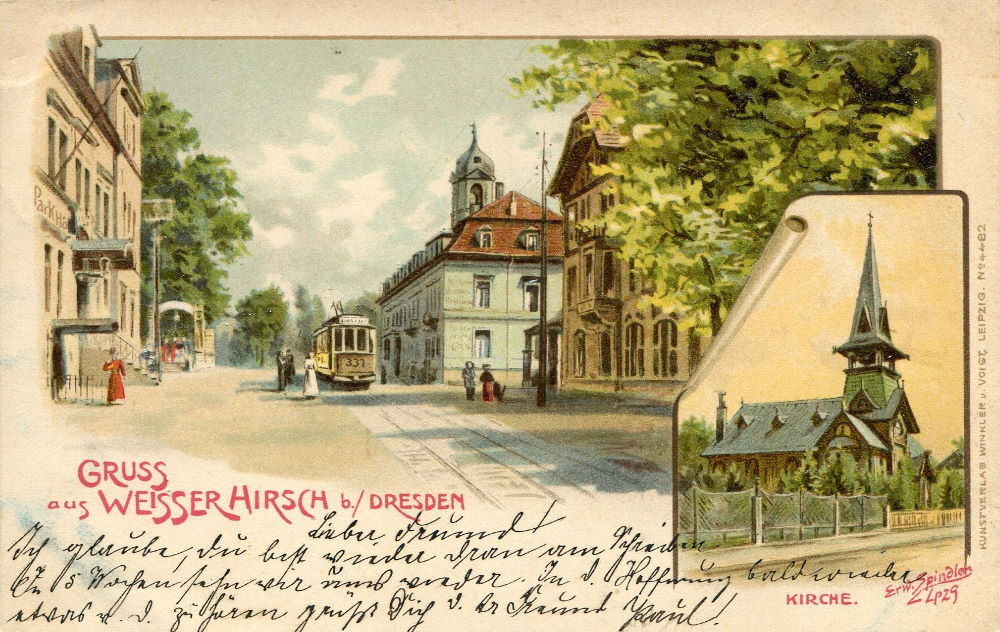 Park H
337
GRUSS
aus WEISSER HIRSCH b./DRESDEN
Lieber Freund!
Ich glaube, du bist wieder dran am Schreiben
5 Wochen sehn wir uns wieder. In d. Hoffnung bald wieder
etwas v. d. zu hören grüßt Dich d. Freund Paul!
KIRCHE.
Erw. Spindler
Lpzg
KUNSTVERLAG WINKLER u. VOIGT, LEIPZIG. No 4482